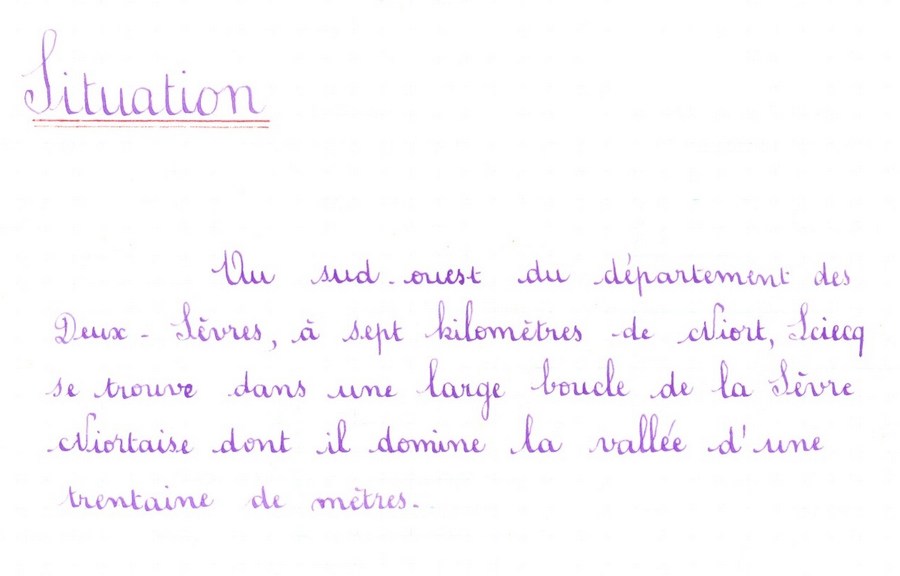 Situation
Au sud-ouest du département des
Deux-Sèvres, à sept kilomètres de Niort, Sciecq
se trouve dans une large boucle de la Sèvre
Niortaise dont il domine la vallée d'une
trentaine de mètres.